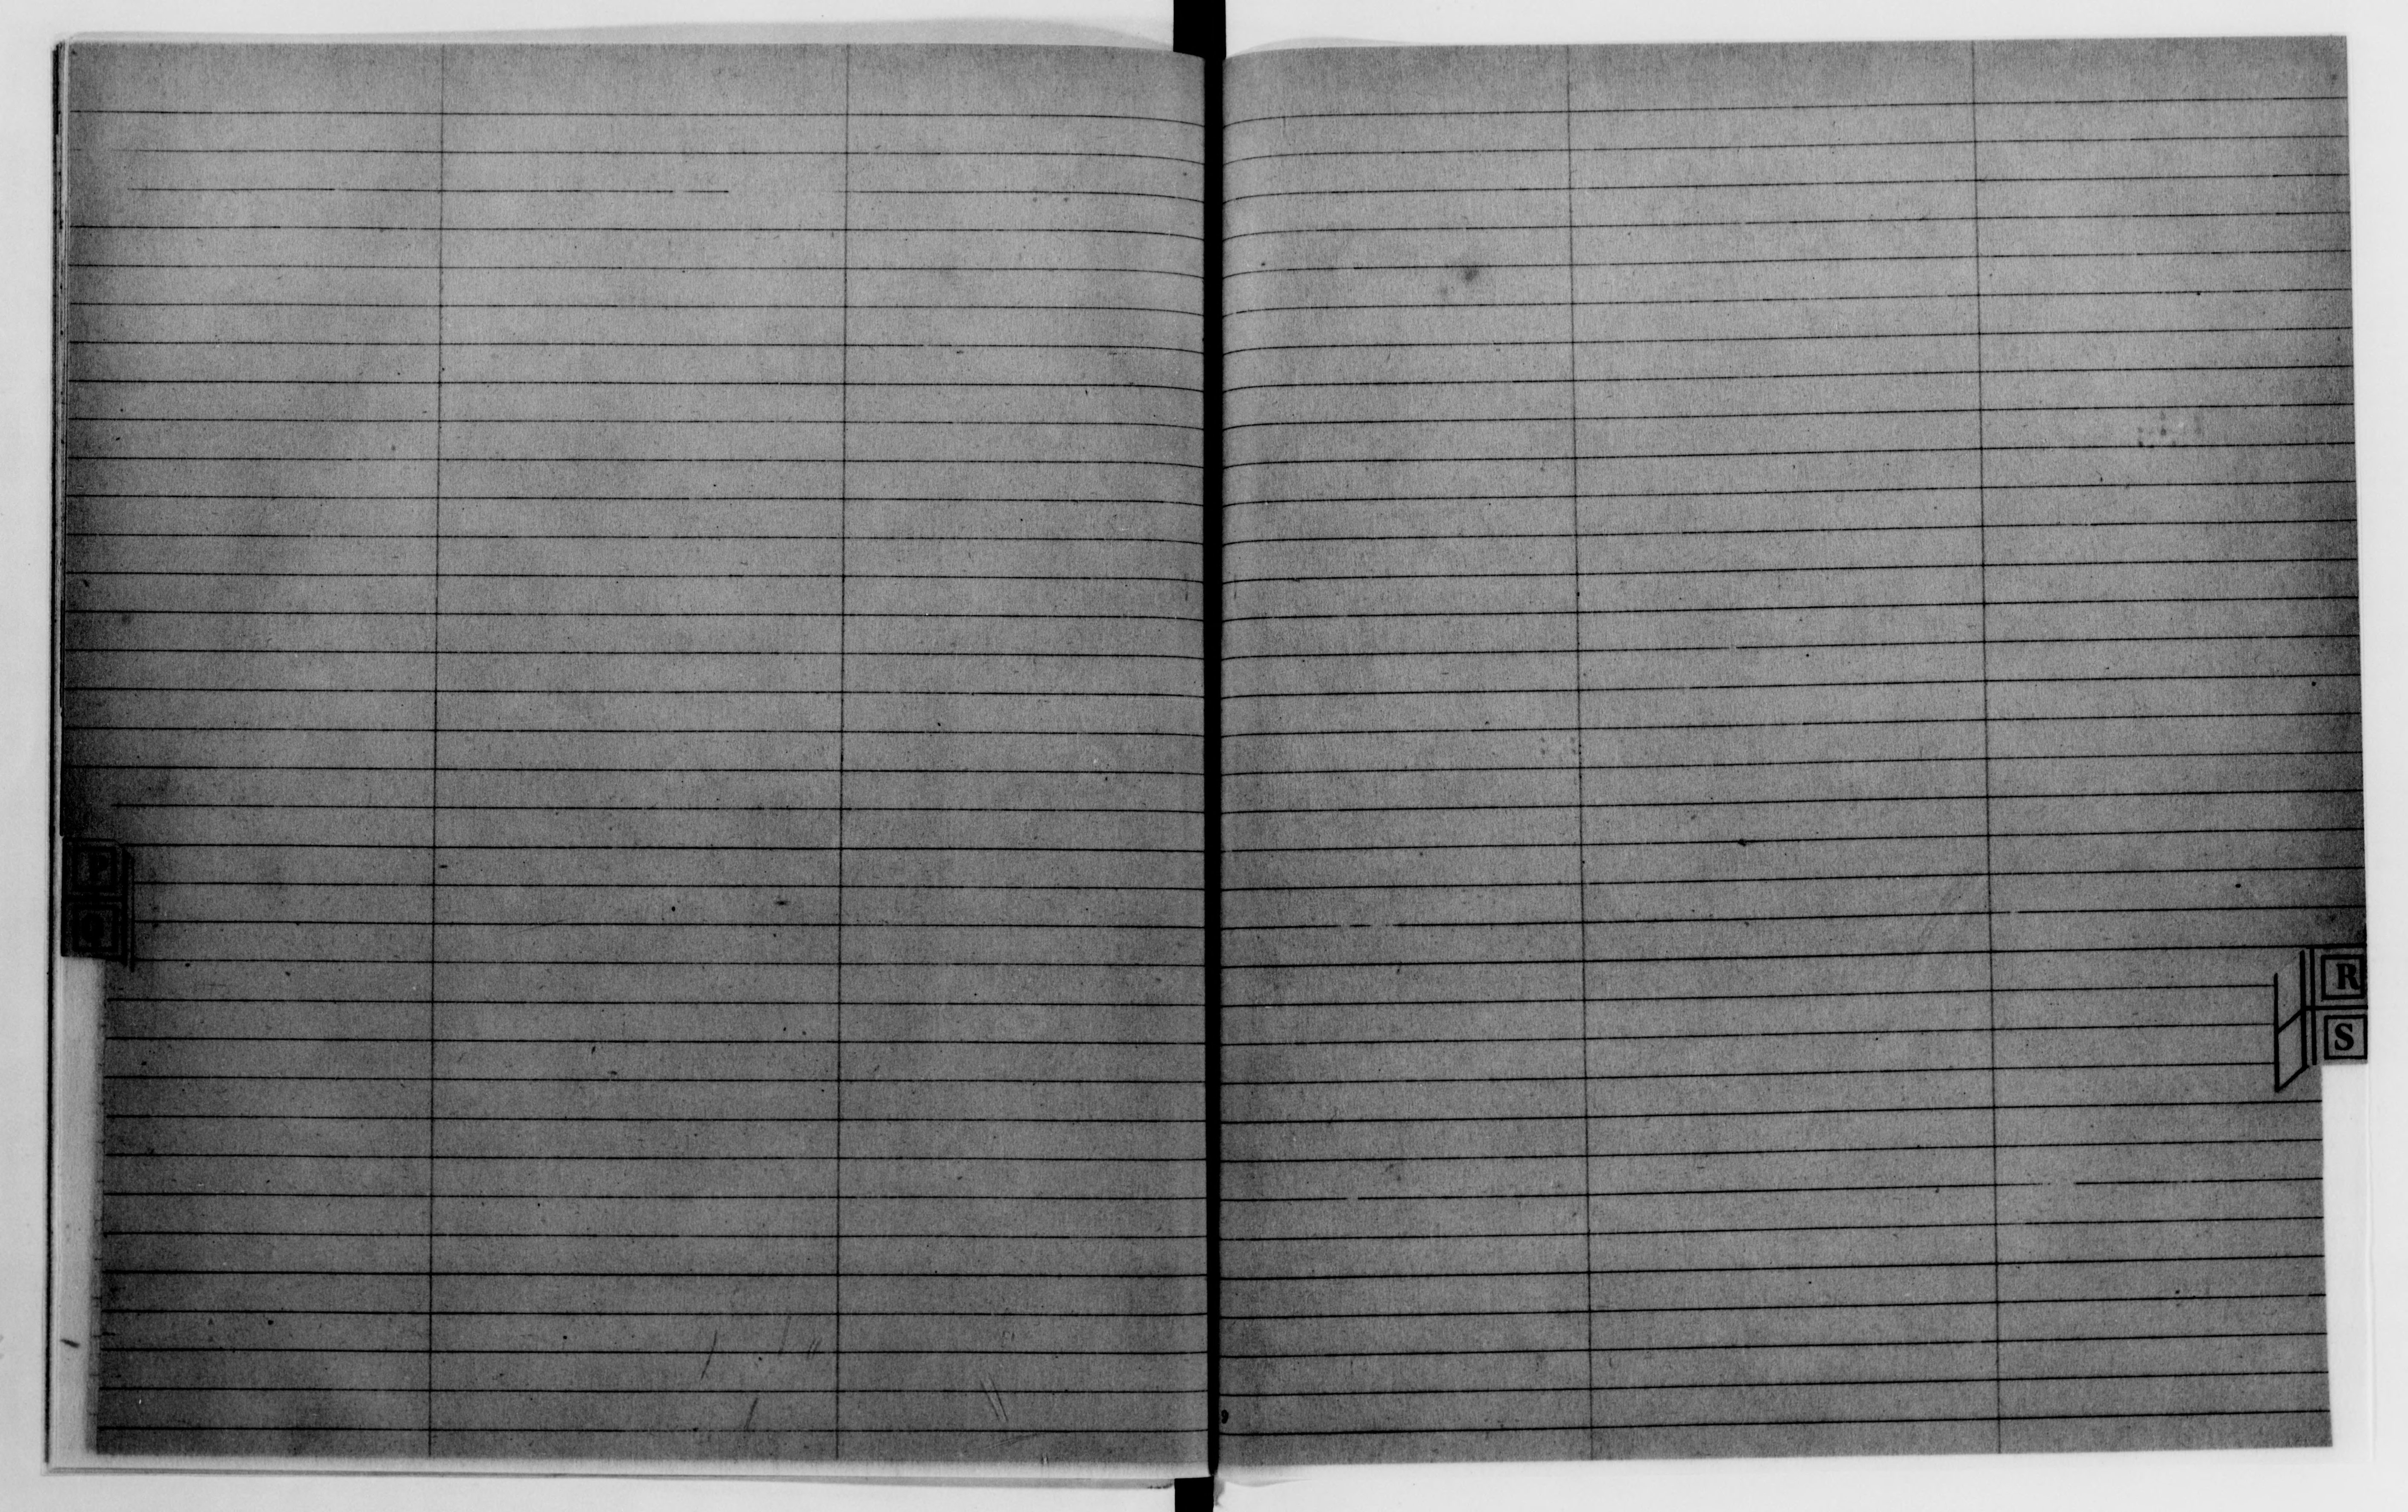 P
Q
R
S